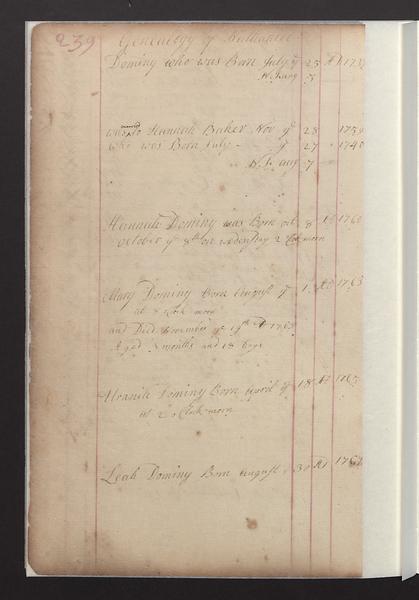 239
Genealogy of Nathaniel
Dominy who was Born July ye 25 AD 1737
N.S. aug 5
married
was to Hannah Baker Nov ye 28 1759
who was Born July ye 27 1740
N.S. aug 7
Hannah Dominy was Born oct 8 AD 1760
october ye 8th on wednesday 2 Clok morn
Mary Dominy Born August ye 1 AD 1763
at Clok morn
and Died November ye 19th AD 1763
Aged 3 months and 18 Days
Urania Dominy Born April ye 18 AD 1765
at 2 o Clok morn
Leah Dominy Born August 30 AD